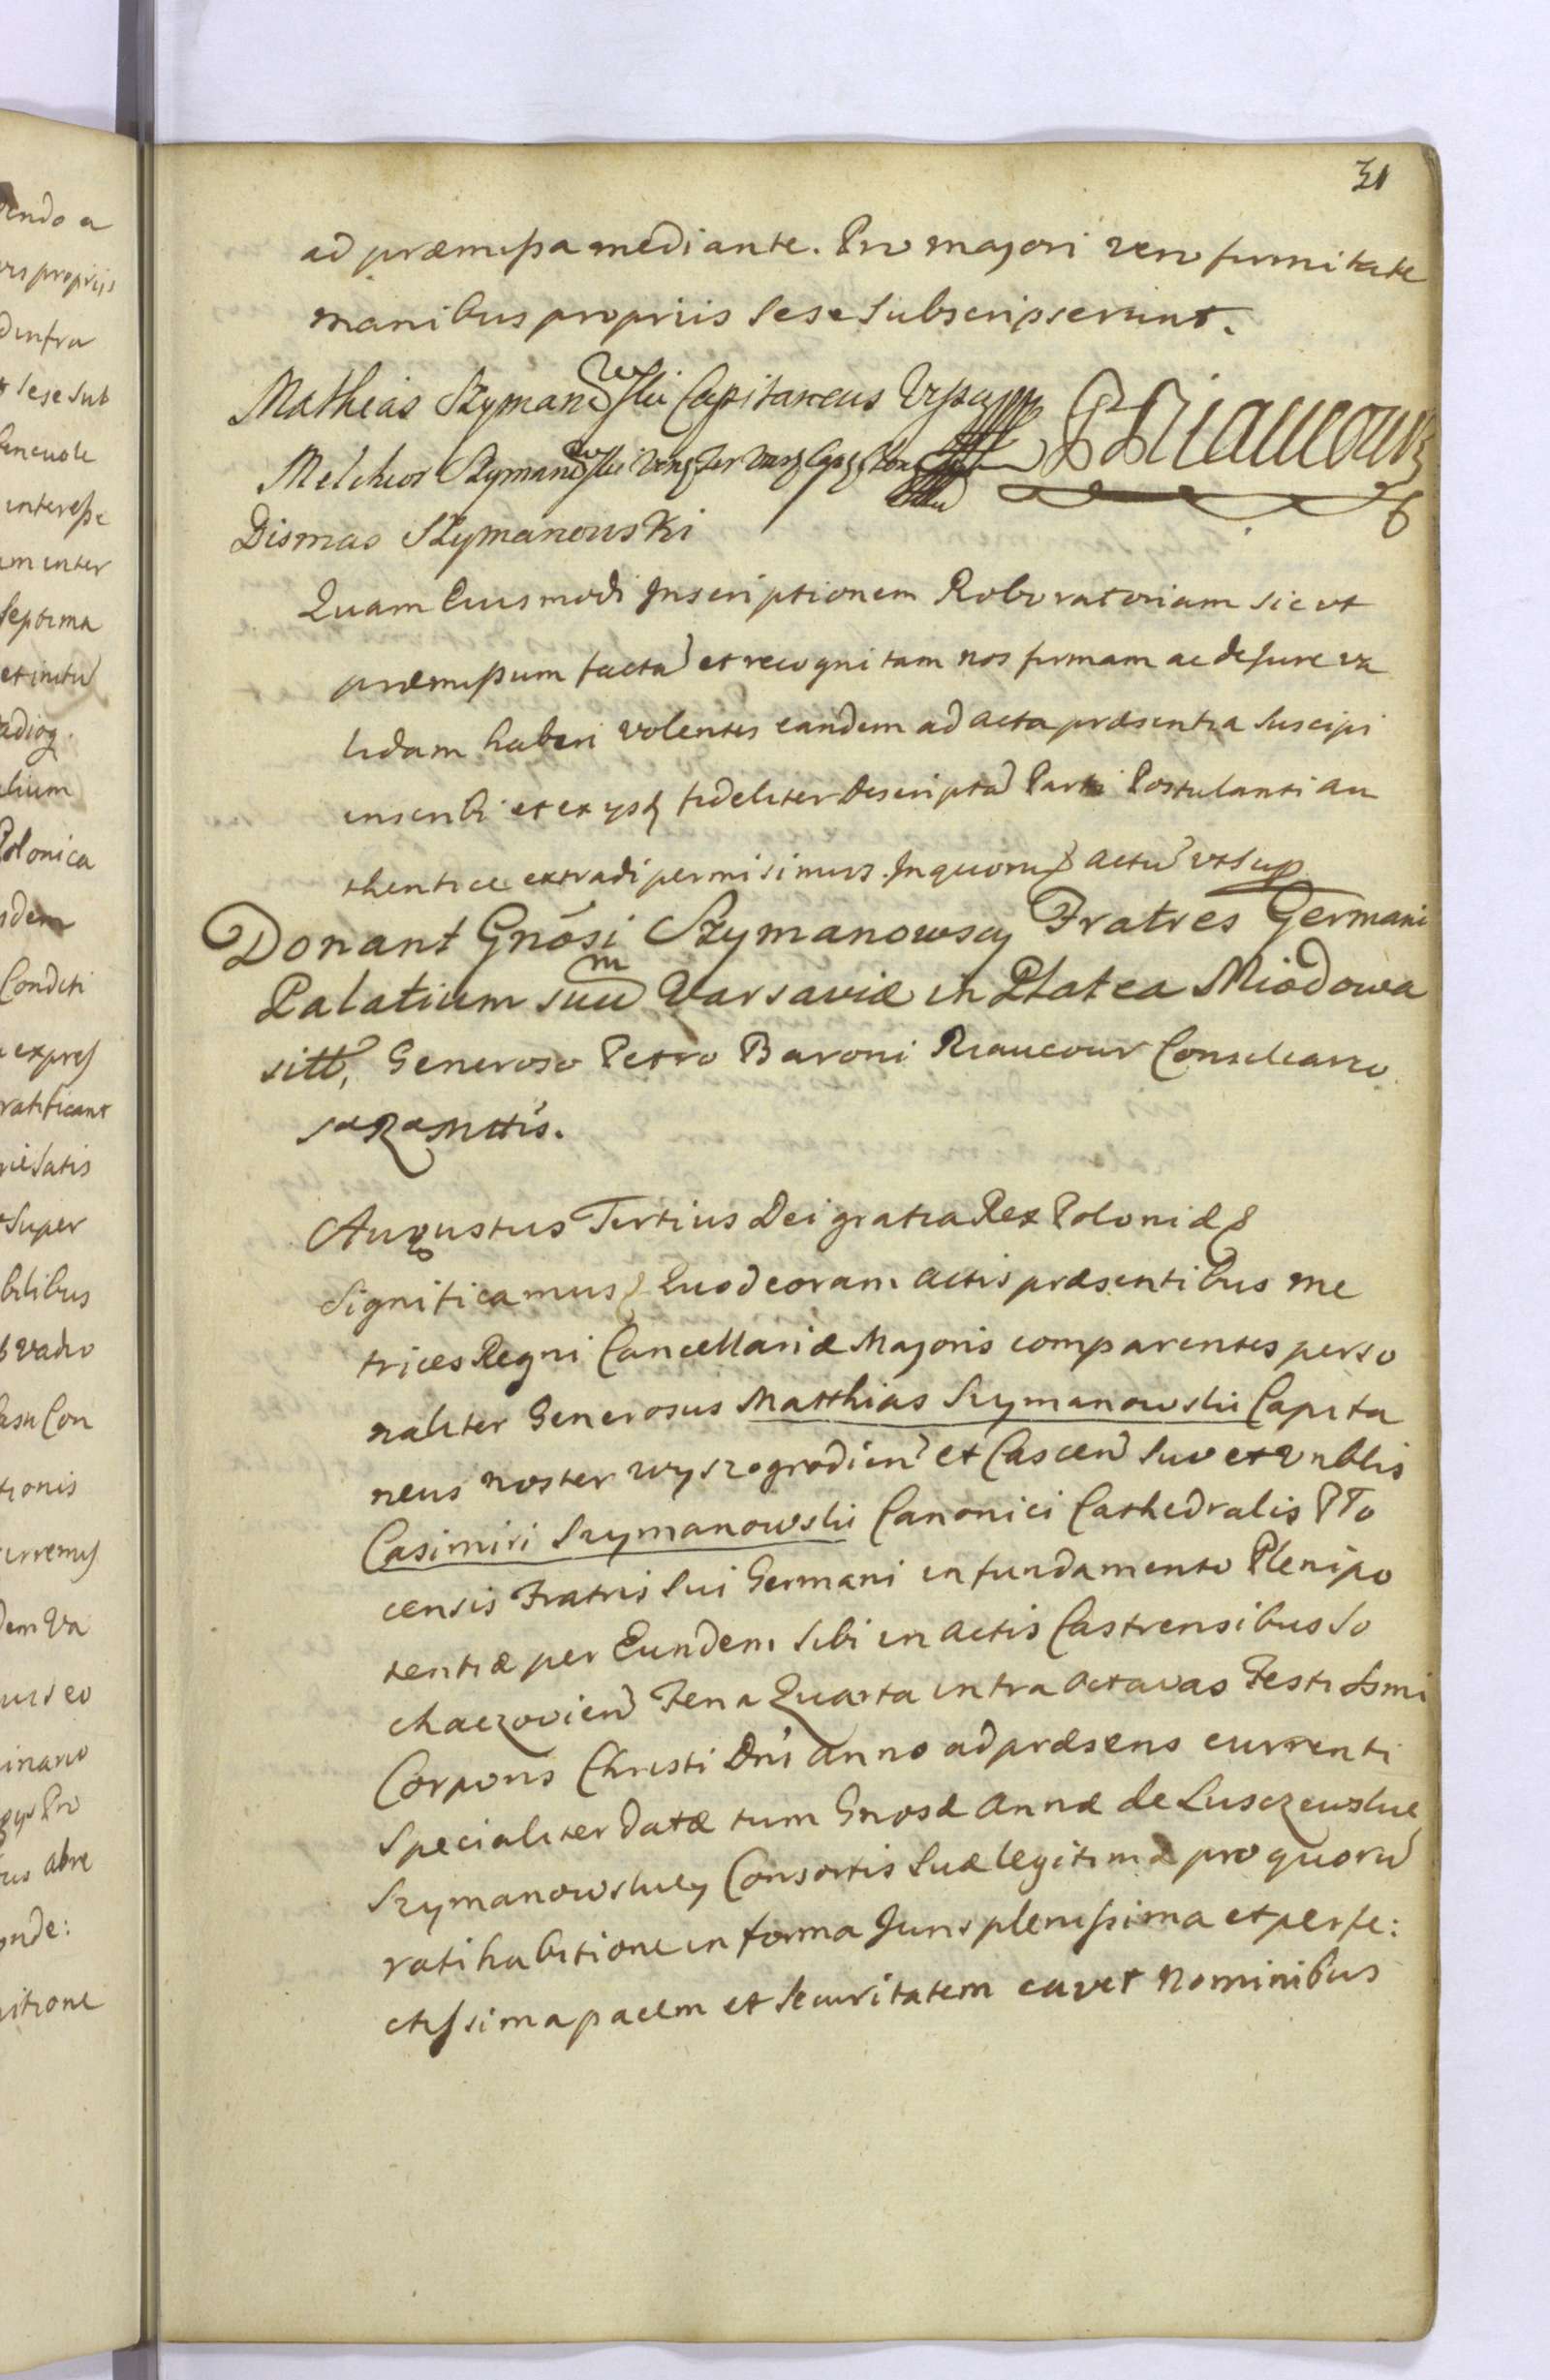 31
ad præmissa mediante. Pro majori vero firmitate
manibus propriis sese Subscripserunt.
Mathias Szymanowski Capitaneus
Melchior Szymanowski
PRiaucour
Dismas Szymanowski
Quam Eiusmodi Inscriptionem Roboratoriam sic ut
præmissum factã et recognitam nos firmam ac de Jure va
lidam haberi volentes eandem ad acta præsentia Suscipi
inscribi et ex ysdem fideliter Descriptã Parti Postulanti au
thentice extradi permisimus. In quorum actũ ut Sup
Donant Gnosi Szymanowscy Fratres Germani
Palatium suum Varsaviæ in Platea Miodowa
sitt, Generoso Petro Baroni Riaucour Consiliario
Augustus Tertius Dei gratia Rex Poloniæ &
Significamus & Quod coram actis præsentibus me
trices Regni Cancellariæ Majoris comparentes perso
naliter Generosus Matthias Szymanowski Capita
neus noster Wyszogrodien et Cascen Suo et Vnblis
Casimiri Szymanowski Canonici Cathedralis Plo
censis Fratris Sui Germani in fundamento Plenipo
tentiæ per Eundem Sibi in actis Castrensibus So
chaczovien Feria Quarta intra octavas Festi Ssmi
Corporis Christi Dni anno ad præsens currenti
Specialiter datæ tum Gnosæ Annæ de Lusczewskie
Szymanowskiey Consortis Suæ legitimæ pro quorũ
ratihabitione in forma Juris plenissima et perfe:
ctissima pacem et Securitatem cavet Nominibus
endo a
propriis
infra
sese sub
benevole
interesse
inter
Septima
Polonica
Conditi
ratificant
satis
Super
vadio
Con
Va
abre